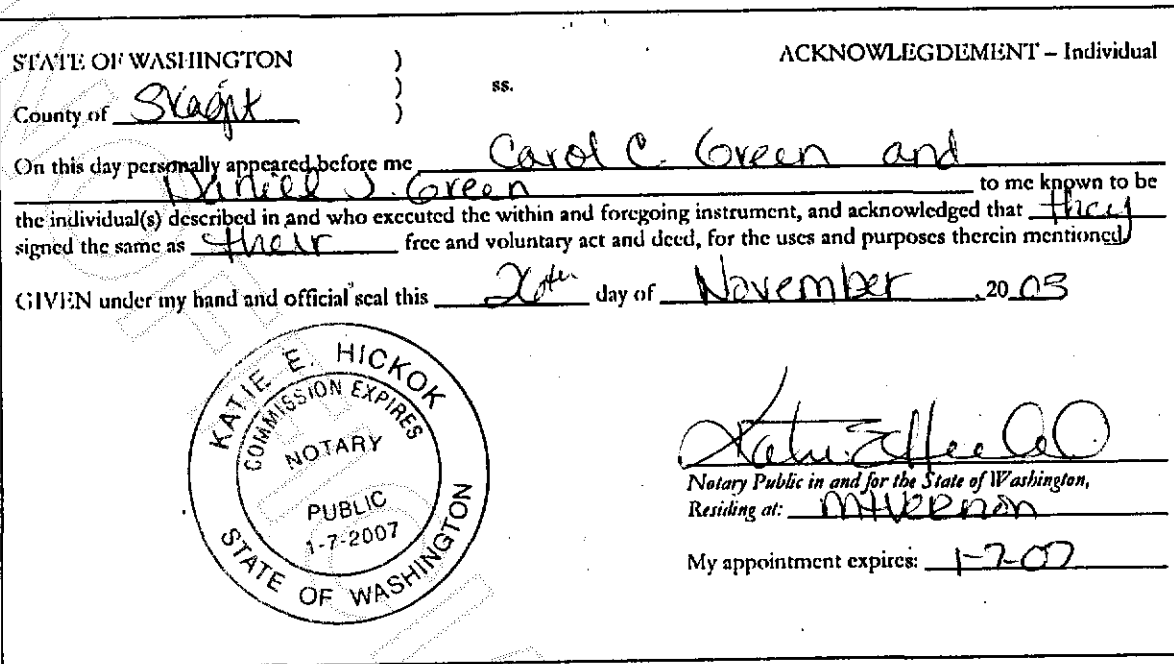 STATE OF WASHINGTON ) ACKNOWLEGDEMENT – Individual
) ss.
County of Skagit )
On this day personally appeared before me Carol C. Green and
Daniel J. Green to me known to be
the individual(s) described in and who executed the within and foregoing instrument, and acknowledged that they
signed the same as their free and voluntary act and deed, for the uses and purposes therein mentioned
GIVEN under my hand and official seal this day of November ,20 03
KATIE E. HICKOK
COMMISSION EXPIRES
NOTARY
PUBLIC
1-7-2007
STATE OF WASHINGTON
Katie E Hickok
Notary Public in and for the State of Washington,
Residing at: Mt Vernon
My appointment expires: 1-7-07